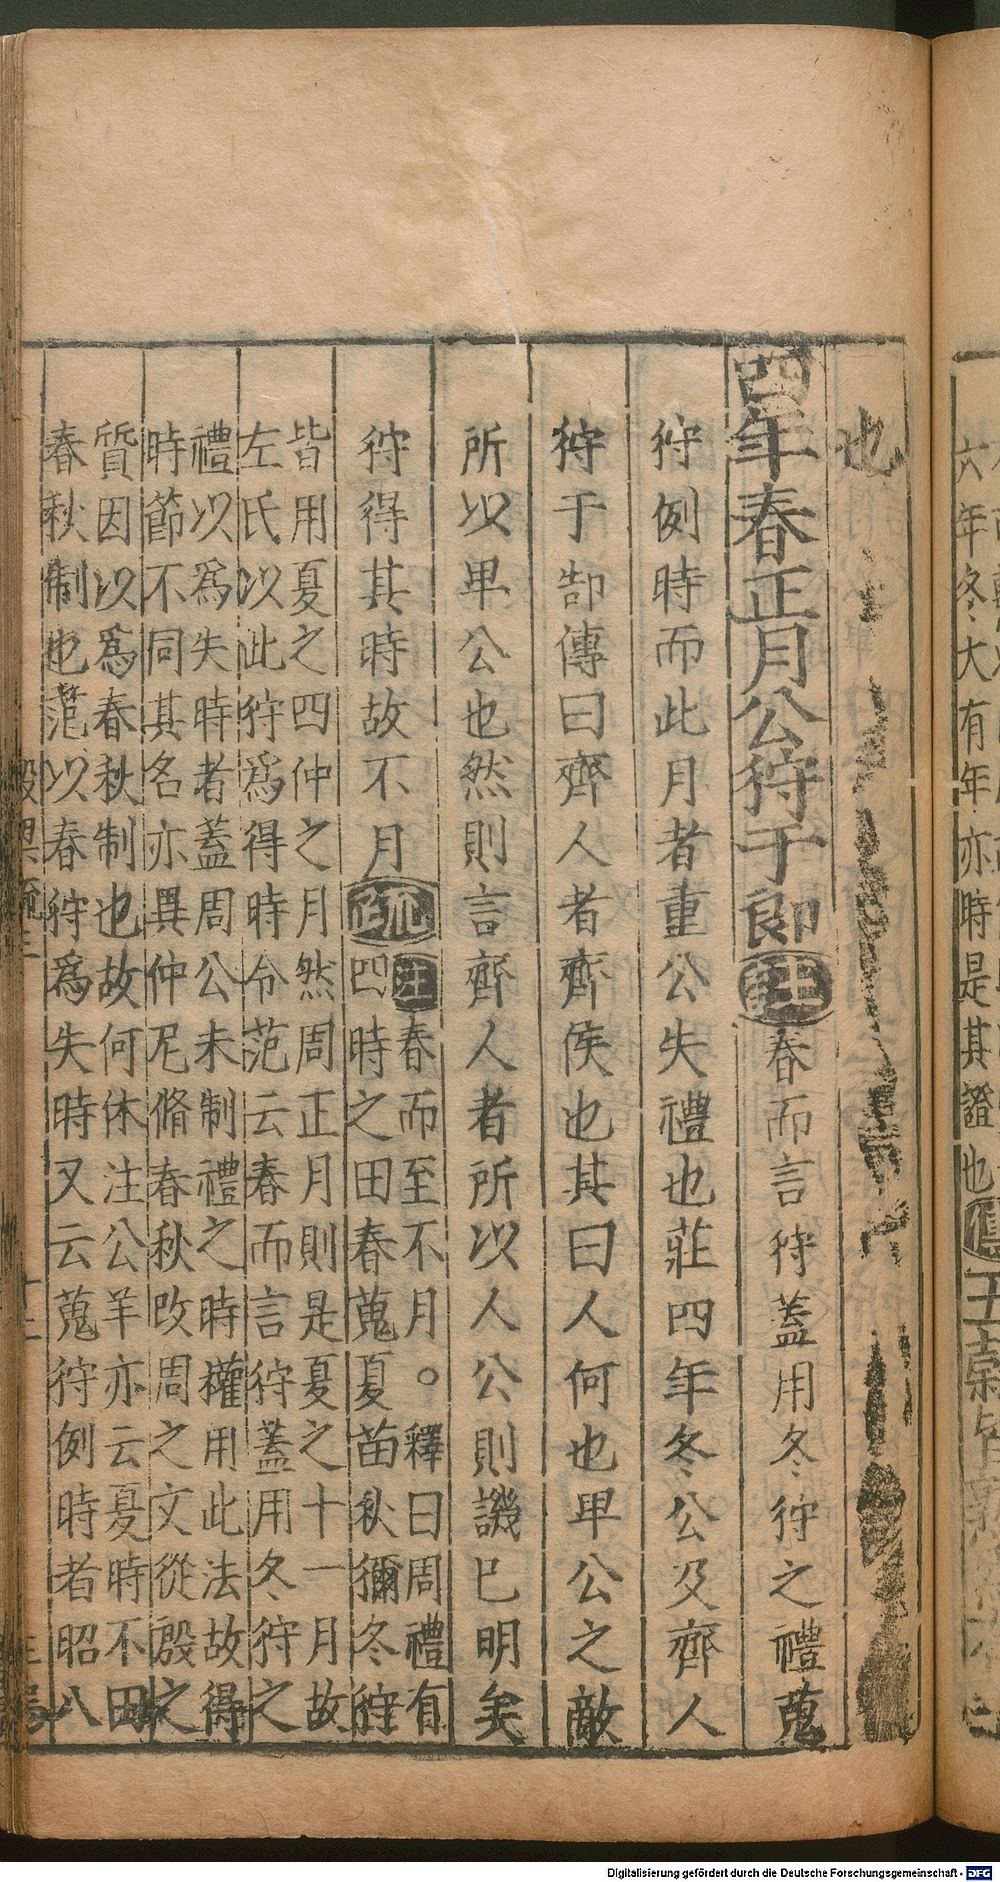 也
四年春正月公狩于郎
註
春而言狩蓋用冬狩之禮蒐
狩例時而此月者重公失禮也莊四年冬公及齊人
狩于郜傳曰齊人者齊侯也其曰人何也卑公之敵
所以卑公也然則言齊人者所以人公則譏已明矣
狩得其時故不月
疏
註
春而至不月。釋曰周禮有
四時之田春蒐夏苗秋獮冬狩
皆用夏之四仲之月然周正月則是夏之十一月故
左氏以此狩爲得時令范云春而言狩蓋用冬狩之
禮以爲失時者蓋周公未制禮之時權用此法故得
時節不同其名亦異仲尼脩春秋改周之文從殷之
質因以爲春秋制也故何休注公羊亦云夏時不田
春秋制也范以春狩爲失時又云蒐狩例時者昭八
六年冬大有年亦時是其證也
Digitalisierung gefördert durch die Deutsche Forschungsgemeinschaft - DFG